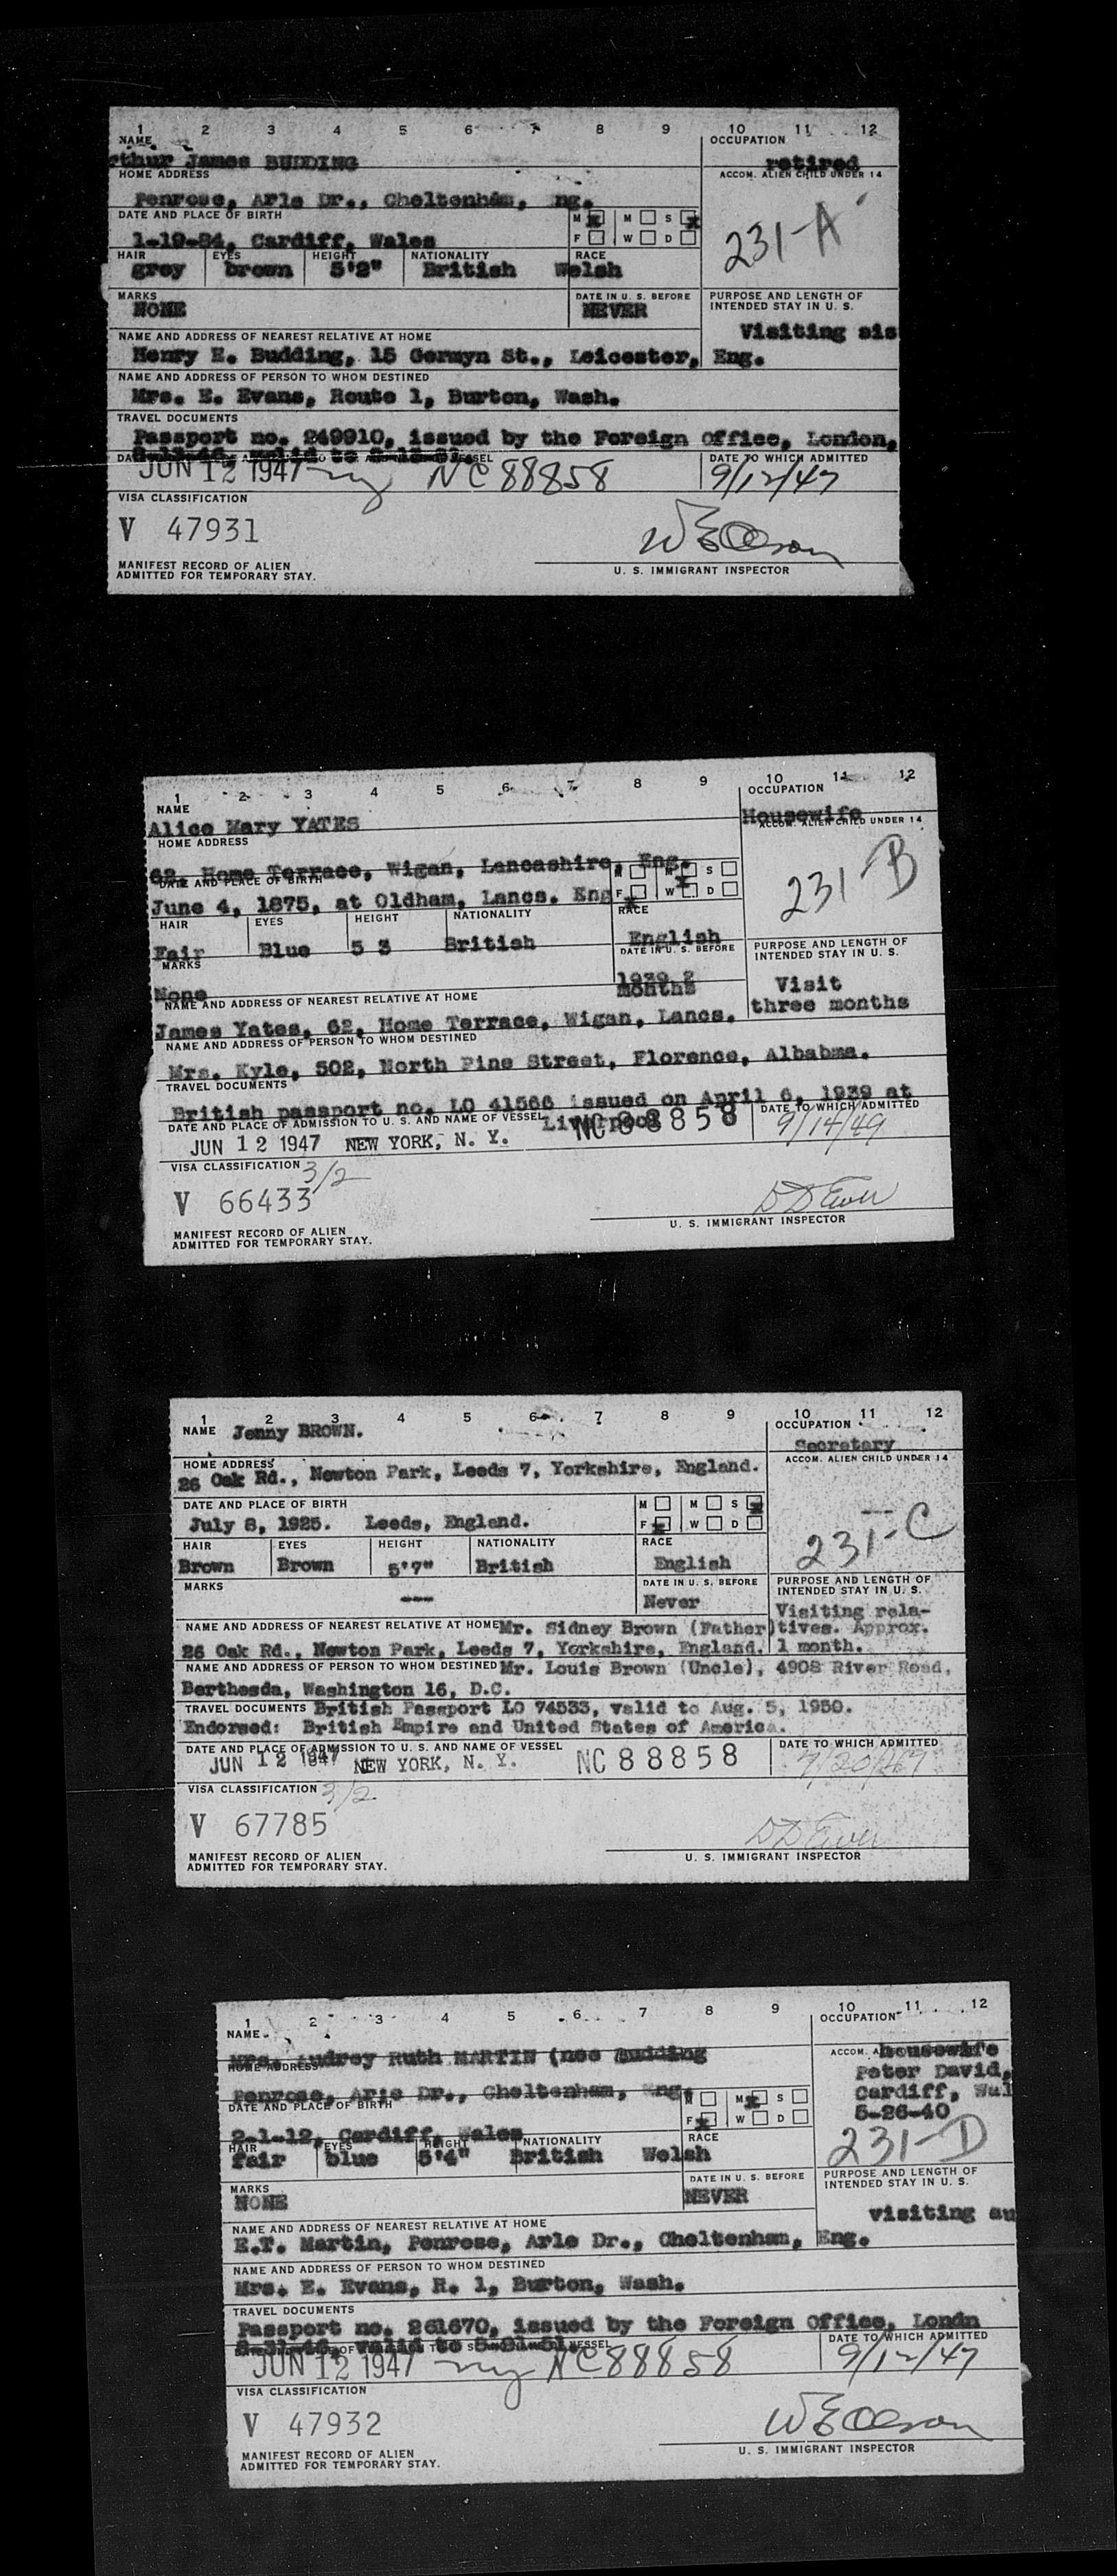 1 2 3 4 5 6 7 8 9 10 11 12
NAME OCCUPATION
rthur James BUDDING retired
HOME ADDRESS ACCOM. ALIEN CHILD UNDER 14
Penrose, Arle Dr., Cheltenham, ng.
DATE AND PLACE OF BIRTH M M S
231-A
1-19-84, Cardiff, Wales F W D
HAIR EYES HEIGHT NATIONALITY RACE
grey brown 5'2" British Welsh
MARKS DATE IN U. S. BEFORE PURPOSE AND LENGTH OF
NONE NEVER INTENDED STAY IN U. S.
Visiting sis
NAME AND ADDRESS OF NEAREST RELATIVE AT HOME
Henry E. Budding, 15 Germyn St., Leicester, Eng.
NAME AND ADDRESS OF PERSON TO WHOM DESTINED
Mrs. E. Evans, Route 1, Burton, Wash.
TRAVEL DOCUMENTS
Passport no. 249910, issued by the Foreign Office, London,
valid to
DATE TO WHICH ADMITTED
JUN 12 1947 ny NC 88858 9/12/47
VISA CLASSIFICATION
V 47931
W E Olson
MANIFEST RECORD OF ALIEN U. S. IMMIGRANT INSPECTOR
ADMITTED FOR TEMPORARY STAY.
1 2 3 4 5 6 7 8 9 10 11 12
NAME OCCUPATION
Alice Mary YATES Housewife
HOME ADDRESS ACCOM. ALIEN CHILD UNDER 14
62, Home Terrace, Wigan, Lancashire, Eng.
DATE AND PLACE OF BIRTH M M S
231-B
June 4, 1875, at Oldham, Lancs. Eng F W D
HAIR EYES HEIGHT NATIONALITY RACE
Fair Blue 5 3 British English
MARKS DATE IN U. S. BEFORE PURPOSE AND LENGTH OF
INTENDED STAY IN U. S.
None 1939 2 months Visit
three months
NAME AND ADDRESS OF NEAREST RELATIVE AT HOME
James Yates, 62, Home Terrace, Wigan, Lancs.
NAME AND ADDRESS OF PERSON TO WHOM DESTINED
Mrs. Kyle, 502, North Pine Street, Florence, Albabma.
TRAVEL DOCUMENTS
British passport no. LO 41566 issued on April 6, 1939 at
Liverpool
DATE AND PLACE OF ADMISSION TO U. S. AND NAME OF VESSEL DATE TO WHICH ADMITTED
JUN 12 1947 NEW YORK, N. Y. NC 88858 9/14/49
VISA CLASSIFICATION 3/2
V 66433
D D Ewer
MANIFEST RECORD OF ALIEN U. S. IMMIGRANT INSPECTOR
ADMITTED FOR TEMPORARY STAY.
1 2 3 4 5 6 7 8 9 10 11 12
NAME Jenny BROWN. OCCUPATION
Secretary
HOME ADDRESS ACCOM. ALIEN CHILD UNDER 14
26 Oak Rd., Newton Park, Leeds 7, Yorkshire, England.
DATE AND PLACE OF BIRTH M M S
July 8, 1925. Leeds, England. F W D
231-C
HAIR EYES HEIGHT NATIONALITY RACE
Brown Brown 5'7" British English
MARKS DATE IN U. S. BEFORE PURPOSE AND LENGTH OF
--- Never INTENDED STAY IN U. S.
Visiting rela-
NAME AND ADDRESS OF NEAREST RELATIVE AT HOME Mr. Sidney Brown (Father) tives. Approx.
26 Oak Rd., Newton Park, Leeds 7, Yorkshire, England. 1 month.
NAME AND ADDRESS OF PERSON TO WHOM DESTINED Mr. Louis Brown (Uncle), 4908 River Road,
Berthesda, Washington 16, D.C.
TRAVEL DOCUMENTS British Passport LO 74533, valid to Aug. 5, 1950.
Endorsed: British Empire and United States of America.
DATE AND PLACE OF ADMISSION TO U. S. AND NAME OF VESSEL DATE TO WHICH ADMITTED
JUN 12 1947 NEW YORK, N. Y. NC 88858
VISA CLASSIFICATION 3/2
V 67785
D D Ewer
MANIFEST RECORD OF ALIEN U. S. IMMIGRANT INSPECTOR
ADMITTED FOR TEMPORARY STAY.
1 2 3 4 5 6 7 8 9 10 11 12
NAME OCCUPATION
Mrs. Audrey Ruth MARTIN (nee Budding housewife
HOME ADDRESS ACCOM.
Peter David,
Penrose, Arle Dr., Cheltenham, Eng. Cardiff, Wal
DATE AND PLACE OF BIRTH M M S
5-26-40
2-1-12, Cardiff, Wales F W D
231-D
HAIR EYES HEIGHT NATIONALITY RACE
fair blue 5'4" British Welsh
MARKS DATE IN U. S. BEFORE PURPOSE AND LENGTH OF
NONE NEVER INTENDED STAY IN U. S.
visiting au
NAME AND ADDRESS OF NEAREST RELATIVE AT HOME
E.T. Martin, Penrose, Arle Dr., Cheltenham, Eng.
NAME AND ADDRESS OF PERSON TO WHOM DESTINED
Mrs. E. Evans, R. 1, Burton, Wash.
TRAVEL DOCUMENTS
Passport no. 261670, issued by the Foreign Office, Londn
valid to
DATE TO WHICH ADMITTED
JUN 12 1947 ny NC 88858 9/12/47
VISA CLASSIFICATION
V 47932
W E Olson
MANIFEST RECORD OF ALIEN U. S. IMMIGRANT INSPECTOR
ADMITTED FOR TEMPORARY STAY.